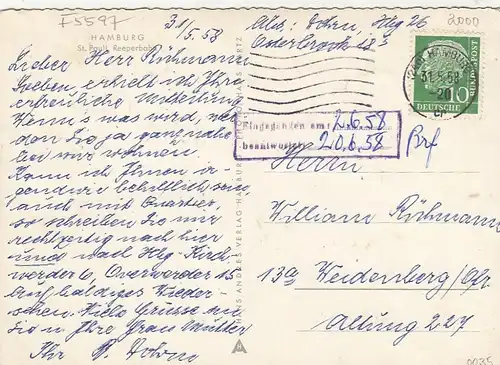 F5597
HAMBURG
St. Pauli, Reeperbahn
31/5.58
Lieber Herr Rühmann
Soeben erhielt ich Ihre
erfreuliche Mitteilung
Wenn's was wird, wer-
den Sie ja ganz nahe
bei mir wohnen.
Kann ich Ihnen ir-
gendwie behilflich sein
auch mit Quartier,
so schreiben Sie mir
rechtzeitig nach hier
und nach Hbg - Kirch-
werder 6, Overwerder 15
Auf baldiges Wieder-
sehen. Viele Grüsse an
Sie u Ihre Frau Mutter
Ihr
HANS ANDRES VERLAG · HAMBURG
Abs: Hbg 26
2000
HAMBURG
31.5.58
20
10
DEUTSCHE
BUNDESPOST
Eingegangen am: 2.6.58
beantwortet: 20.6.58
Brf
Herrn
William Rühmann
13a Weidenberg/Ofr
Altung 227
0035